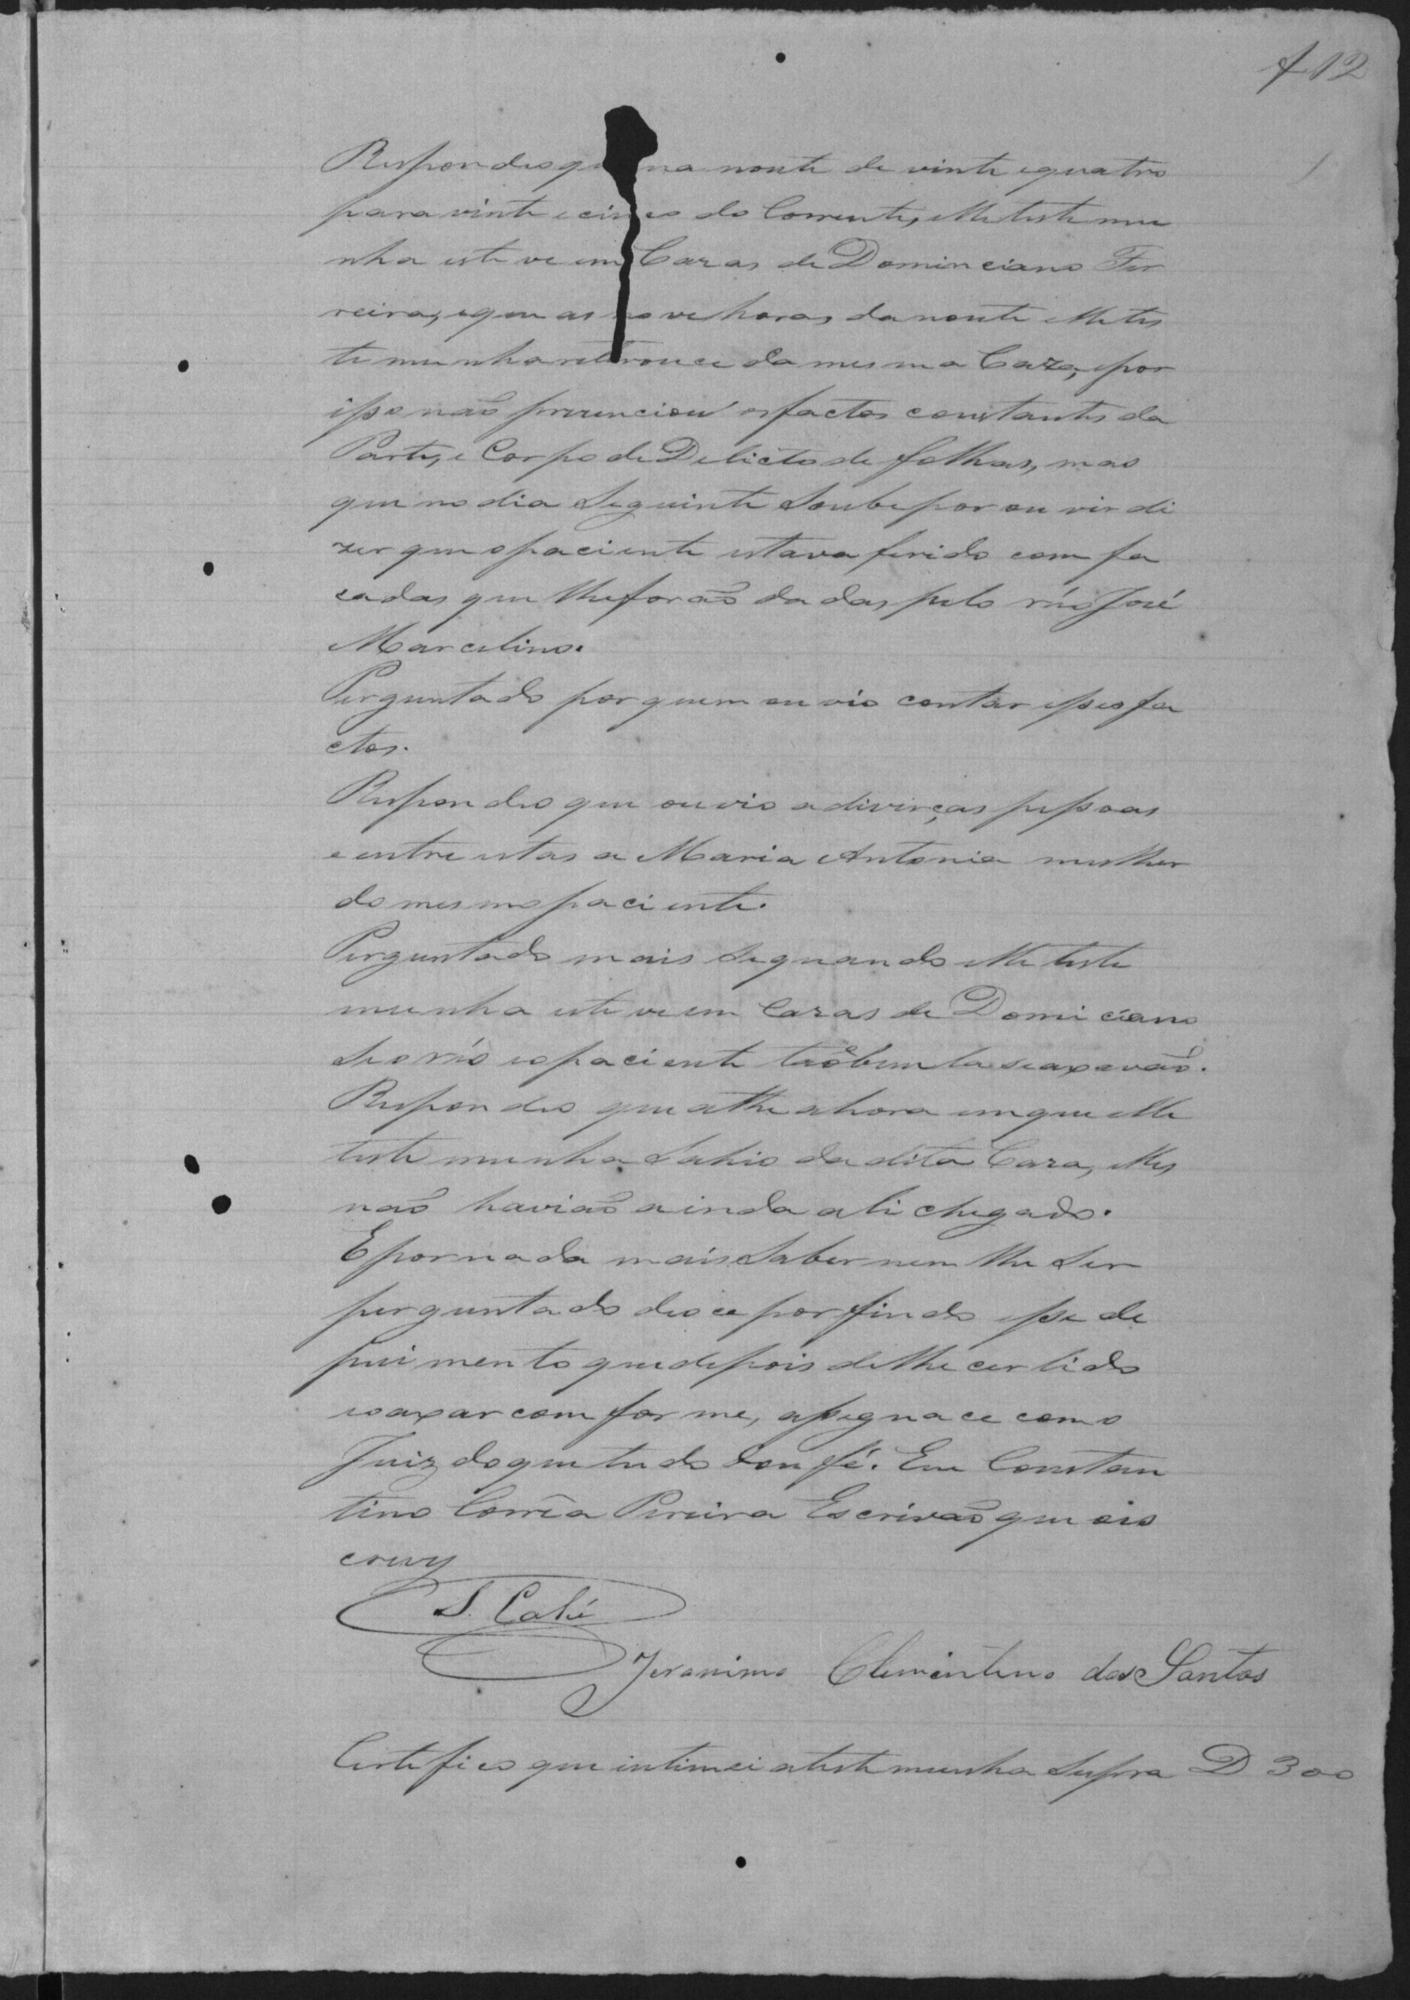 f 12
Respondeo que na noute de vinte e quatro
para vinte e cinco do Corrente, elle testemu
nha esteve em Cazas de Dominciano Fer
reira, e que as nove horas da noute elle tes
temunha retirouce da mesma Caza, e por
isso não prezenciou os factos constantes da
Parte, e Corpo de Delicto de folhas, mas
que no dia Seguinte Soube por ouvir di
zer que o paciente estava ferido com fa
cadas que lhe forão dadas pelo réo José
Marcelino.
Perguntado por quem ouvio contar esses fa
ctos.
Respondeo que ouvio a diverças pessoas
e entre estas a Maria Antonia mulher
do mesmo paciente.
Perguntado mais Se quando elle teste
munha esteve em Cazas de Domiciano
Se o réo e o paciente taõbem la se axavaõ.
Respondeo que athe a hora em que elle
testemunha Sahio da dita Caza, elles
naõ haviaõ ainda ali chegado.
E por nada mais Saber nem lhe Ser
perguntado deoce por findo esse de
puimento que depois de lhe cer lido
e o axar comforme, assignace com o
Juiz do que tudo dou fé. Eu Constan
tino Corrêa Pereira Escrivaõ que o is
crevy
S. Calé
Jeronimo Clementino dos Santos
Certifico que intimei a testemunha Supra D 300